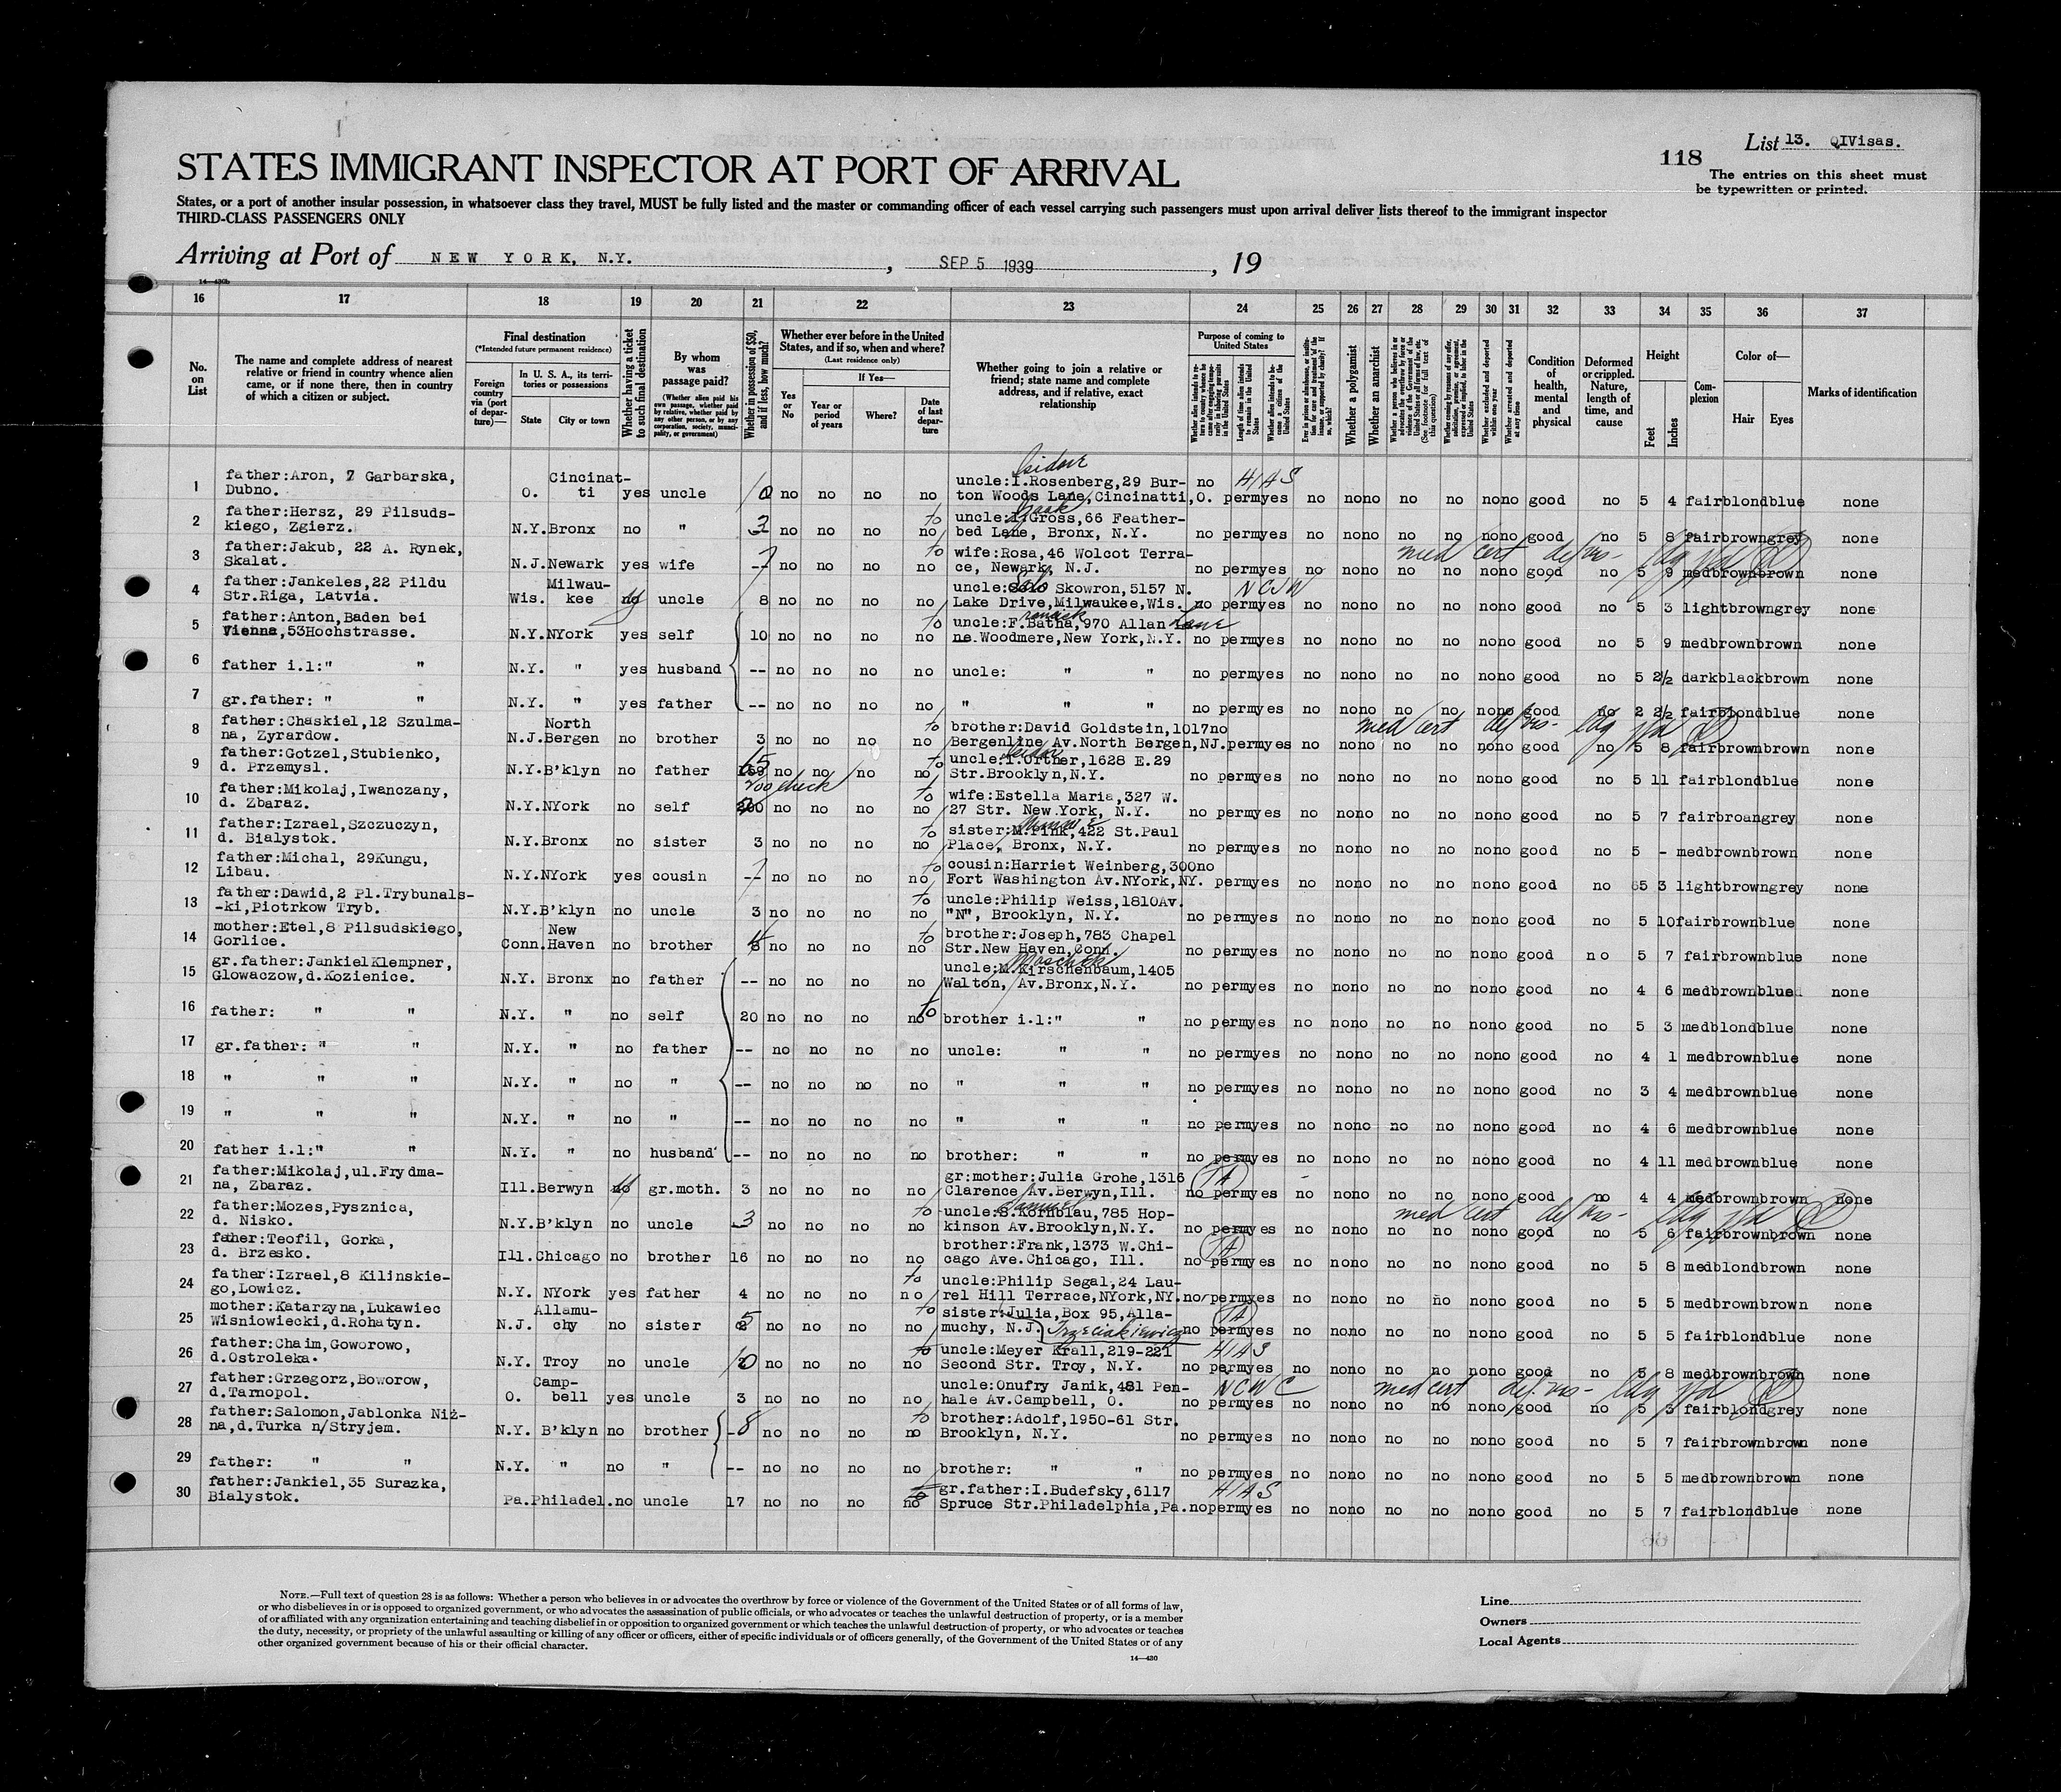 List 13. QIVisas.
118
STATES IMMIGRANT INSPECTOR AT PORT OF ARRIVAL
The entries on this sheet must
be typewritten or printed.
States, or a port of another insular possession, in whatsoever class they travel, MUST be fully listed and the master or commanding officer of each vessel carrying such passengers must upon arrival deliver lists thereof to the immigrant inspector
THIRD-CLASS PASSENGERS ONLY
Arriving at Port of NEW YORK, N.Y. , SEP 5 1939 , 19
16 17 18 19 20 21 22 23 24 25 26 27 28 29 30 31 32 33 34 35 36 37
No. on List
The name and complete address of nearest relative or friend in country whence alien came, or if none there, then in country of which a citizen or subject.
Final destination
(*Intended future permanent residence)
Foreign country via (port of departure)—
In U. S. A., its territories or possessions
State
City or town
Whether having a ticket to such final destination
By whom was passage paid?
(Whether alien paid his own passage, whether paid by relative, whether paid by any other person, or by any corporation, society, municipality, or government)
Whether in possession of $50, and if less, how much?
Whether ever before in the United States, and if so, when and where?
(Last residence only)
Yes or No
If Yes—
Year or period of years
Where?
Date of last departure
Whether going to join a relative or friend; state name and complete address, and if relative, exact relationship
Purpose of coming to United States
Whether a polygamist
Whether an anarchist
Condition of health, mental and physical
Deformed or crippled. Nature, length of time, and cause
Height
Feet
Inches
Complexion
Color of—
Hair
Eyes
Marks of identification
1 father:Aron, 7 Garbarska, Dubno. O. Cincinatti yes uncle 10 no no no no uncle:I.Rosenberg,29 Burton Woods Lane,Cincinatti,O. Isidore HIAS no perm yes no no no no no no no good no 5 4 fair blond blue none
2 father:Hersz, 29 Pilsudskiego, Zgierz. N.Y. Bronx no " 3 no no no no to uncle:I.Gross,66 Featherbed Lane, Bronx, N.Y. no perm yes no no no no no no no good no 5 8 fair brown grey none
3 father:Jakub, 22 A. Rynek, Skalat. N.J. Newark yes wife -- no no no no to wife:Rosa,46 Wolcot Terrace, Newark, N.J. no perm yes no no no no no no no good no 5 9 med brown brown none
med cert def vis-
4 father:Jankeles,22 Pildu Str.Riga, Latvia. Wis. Milwaukee no uncle 8 no no no no uncle: Skowron,5157 N. Lake Drive,Milwaukee,Wis. NCJW no perm yes no no no no no no no good no 5 3 light brown grey none
5 father:Anton,Baden bei Vienna,53Hochstrasse. N.Y. NYork yes self 10 no no no no to uncle:F.Batha,970 Allan Lane ne.Woodmere,New York,N.Y. no perm yes no no no no no no no good no 5 9 med brown brown none
6 father i.l:" " N.Y. " yes husband -- no no no no uncle: " " no perm yes no no no no no no no good no 5 2½ dark black brown none
7 gr.father: " " N.Y. " yes father -- no no no no " " " no perm yes no no no no no no no good no 2 2½ fair blond blue none
8 father:Chaskiel,12 Szulmana, Zyrardow. N.J. North Bergen no brother 3 no no no no to brother:David Goldstein,1017 Bergenline Av.North Bergen,NJ. no perm yes no no no no no no no good no 5 8 fair brown brown none
med cert def vis-
9 father:Gotzel,Stubienko, d. Przemysl. N.Y. B'klyn no father no no no no to uncle:I.Orther,1628 E.29 Str.Brooklyn,N.Y. Isidore no perm yes no no no no no no no good no 5 11 fair blond blue none
10 father:Mikolaj,Iwanczany, d. Zbaraz. N.Y. NYork no self 200 check no no no no to wife:Estella Maria,327 W. 27 Str. New York, N.Y. no perm yes no no no no no no no good no 5 7 fair broan grey none
11 father:Izrael,Szczuczyn, d. Bialystok. N.Y. Bronx no sister 3 no no no no to sister:M.Fink,422 St.Paul Place, Bronx, N.Y. Minnie no perm yes no no no no no no no good no 5 - med brown brown none
12 father:Michal, 29Kungu, Libau. N.Y. NYork yes cousin -- no no no no to cousin:Harriet Weinberg,300 Fort Washington Av.NYork,NY. no perm yes no no no no no no no good no 5 3 light brown grey none
13 father:Dawid,2 Pl.Trybunals-ki,Piotrkow Tryb. N.Y. B'klyn no uncle 3 no no no no to uncle:Philip Weiss,1810Av. "N", Brooklyn, N.Y. no perm yes no no no no no no no good no 5 10 fair brown blue none
14 mother:Etel,8 Pilsudskiego, Gorlice. Conn. New Haven no brother no no no no to brother:Joseph,783 Chapel Str.New Haven,Conn. no perm yes no no no no no no no good no 5 7 fair brown blue none
15 gr.father:Jankiel Klempner, Glowaczow,d.Kozienice. N.Y. Bronx no father -- no no no no uncle:M.Kirschenbaum,1405 Walton, Av.Bronx,N.Y. no perm yes no no no no no no no good no 4 6 med brown blue none
16 father: " " N.Y. " no self 20 no no no no to brother i.l:" " no perm yes no no no no no no no good no 5 3 med blond blue none
17 gr.father: " " N.Y. " no father -- no no no no uncle: " " no perm yes no no no no no no no good no 4 1 med brown blue none
18 " " " N.Y. " no " -- no no no no " " " no perm yes no no no no no no no good no 3 4 med brown blue none
19 " " " N.Y. " no " -- no no no no " " " no perm yes no no no no no no no good no 4 6 med brown blue none
20 father i.l:" " N.Y. " no husband -- no no no no brother: " " no perm yes no no no no no no no good no 4 11 med brown blue none
21 father:Mikolaj,ul.Frydmana, Zbaraz. Ill. Berwyn no gr.moth. 3 no no no no gr:mother:Julia Grohe,1316 Clarence Av.Berwyn,Ill. TA no perm yes no no no no no no no good no 4 4 med brown brown none
22 father:Mozes,Pysznica, d. Nisko. N.Y. B'klyn no uncle 3 no no no no to uncle:S.Kornblau,785 Hopkinson Av.Brooklyn,N.Y. Samuel no perm yes no no no no no no no good no 5 6 fair brown brown none
med cert def vis-
23 father:Teofil, Gorka, d. Brzesko. Ill. Chicago no brother 16 no no no no brother:Frank,1373 W.Chicago Ave.Chicago, Ill. TA no perm yes no no no no no no no good no 5 8 med blond brown none
24 father:Izrael,8 Kilinskiego,Lowicz. N.Y. NYork yes father 4 no no no no to uncle:Philip Segal,24 Laurel Hill Terrace,NYork,NY. no perm yes no no no no no no no good no 5 5 med brown brown none
25 mother:Katarzyna,Lukawiec Wisniowiecki,d.Rohatyn. N.J. Allamuchy no sister 5 no no no no to sister:Julia,Box 95,Allamuchy, N.J. Trzeciakiewicz TA no perm yes no no no no no no no good no 5 5 fair blond blue none
26 father:Chaim,Goworowo, d.Ostroleka. N.Y. Troy no uncle no no no no to uncle:Meyer Krall,219-221 Second Str. Troy, N.Y. HIAS no perm yes no no no no no no no good no 5 8 med brown brown none
27 father:Grzegorz,Boworow, d.Tarnopol. O. Campbell yes uncle 3 no no no no uncle:Onufry Janik,481 Penhale Av.Campbell, O. NCWC no perm yes no no no no no no no good no 5 3 fair blond grey none
med cert def. vis-
28 father:Salomon,Jablonka Niżna,d.Turka n/Stryjem. N.Y. B'klyn no brother 8 no no no no to brother:Adolf,1950-61 Str. Brooklyn, N.Y. no perm yes no no no no no no no good no 5 7 fair brown brown none
29 father: " " N.Y. " no " -- no no no no brother: " " no perm yes no no no no no no no good no 5 5 med brown brown none
30 father:Jankiel,35 Surazka, Bialystok. Pa. Philadel. no uncle 17 no no no no gr.father:I.Budefsky,6117 Spruce Str.Philadelphia,Pa. HIAS no perm yes no no no no no no no good no 5 7 fair blond blue none
NOTE.—Full text of question 28 is as follows: Whether a person who believes in or advocates the overthrow by force or violence of the Government of the United States or of all forms of law,
or who disbelieves in or is opposed to organized government, or who advocates the assassination of public officials, or who advocates or teaches the unlawful destruction of property, or is a member
of or affiliated with any organization entertaining and teaching disbelief in or opposition to organized government or which teaches the unlawful destruction of property, or who advocates or teaches
the duty, necessity, or propriety of the unlawful assaulting or killing of any officer or officers, either of specific individuals or of officers generally, of the Government of the United States or of any
other organized government because of his or their official character.
14—430
Line
Owners
Local Agents